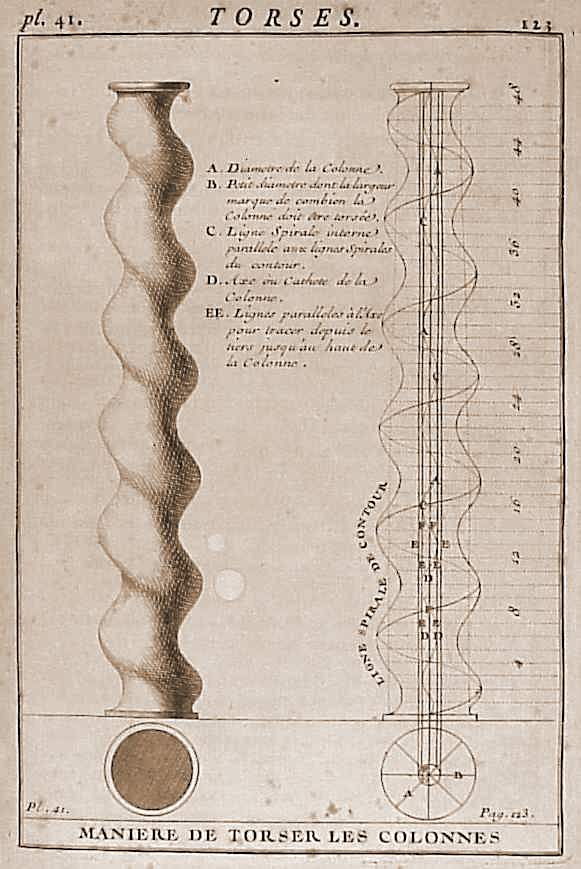 pl. 41. TORSES. 123
A. Diametre de la Colonne.
B. Petit diametre dont la largeur
marque de combien la
Colonne doit être torsée.
C. Ligne Spirale interne
parallele aux lignes Spirales
du contour.
D. Axe ou Cathete de la
Colonne.
EE. Lignes paralleles à l'Axe
pour tracer depuis le
tiers jusqu'au haut de
la Colonne.
48
44
40
36
32
28
24
20
16
12
8
4
A
C
A
C
A
C
F F
E E
E E
D
F
E E
D D
LIGNE SPIRALE DE CONTOUR
B
A
Pl. 41. Pag. 123.
MANIERE DE TORSER LES COLONNES